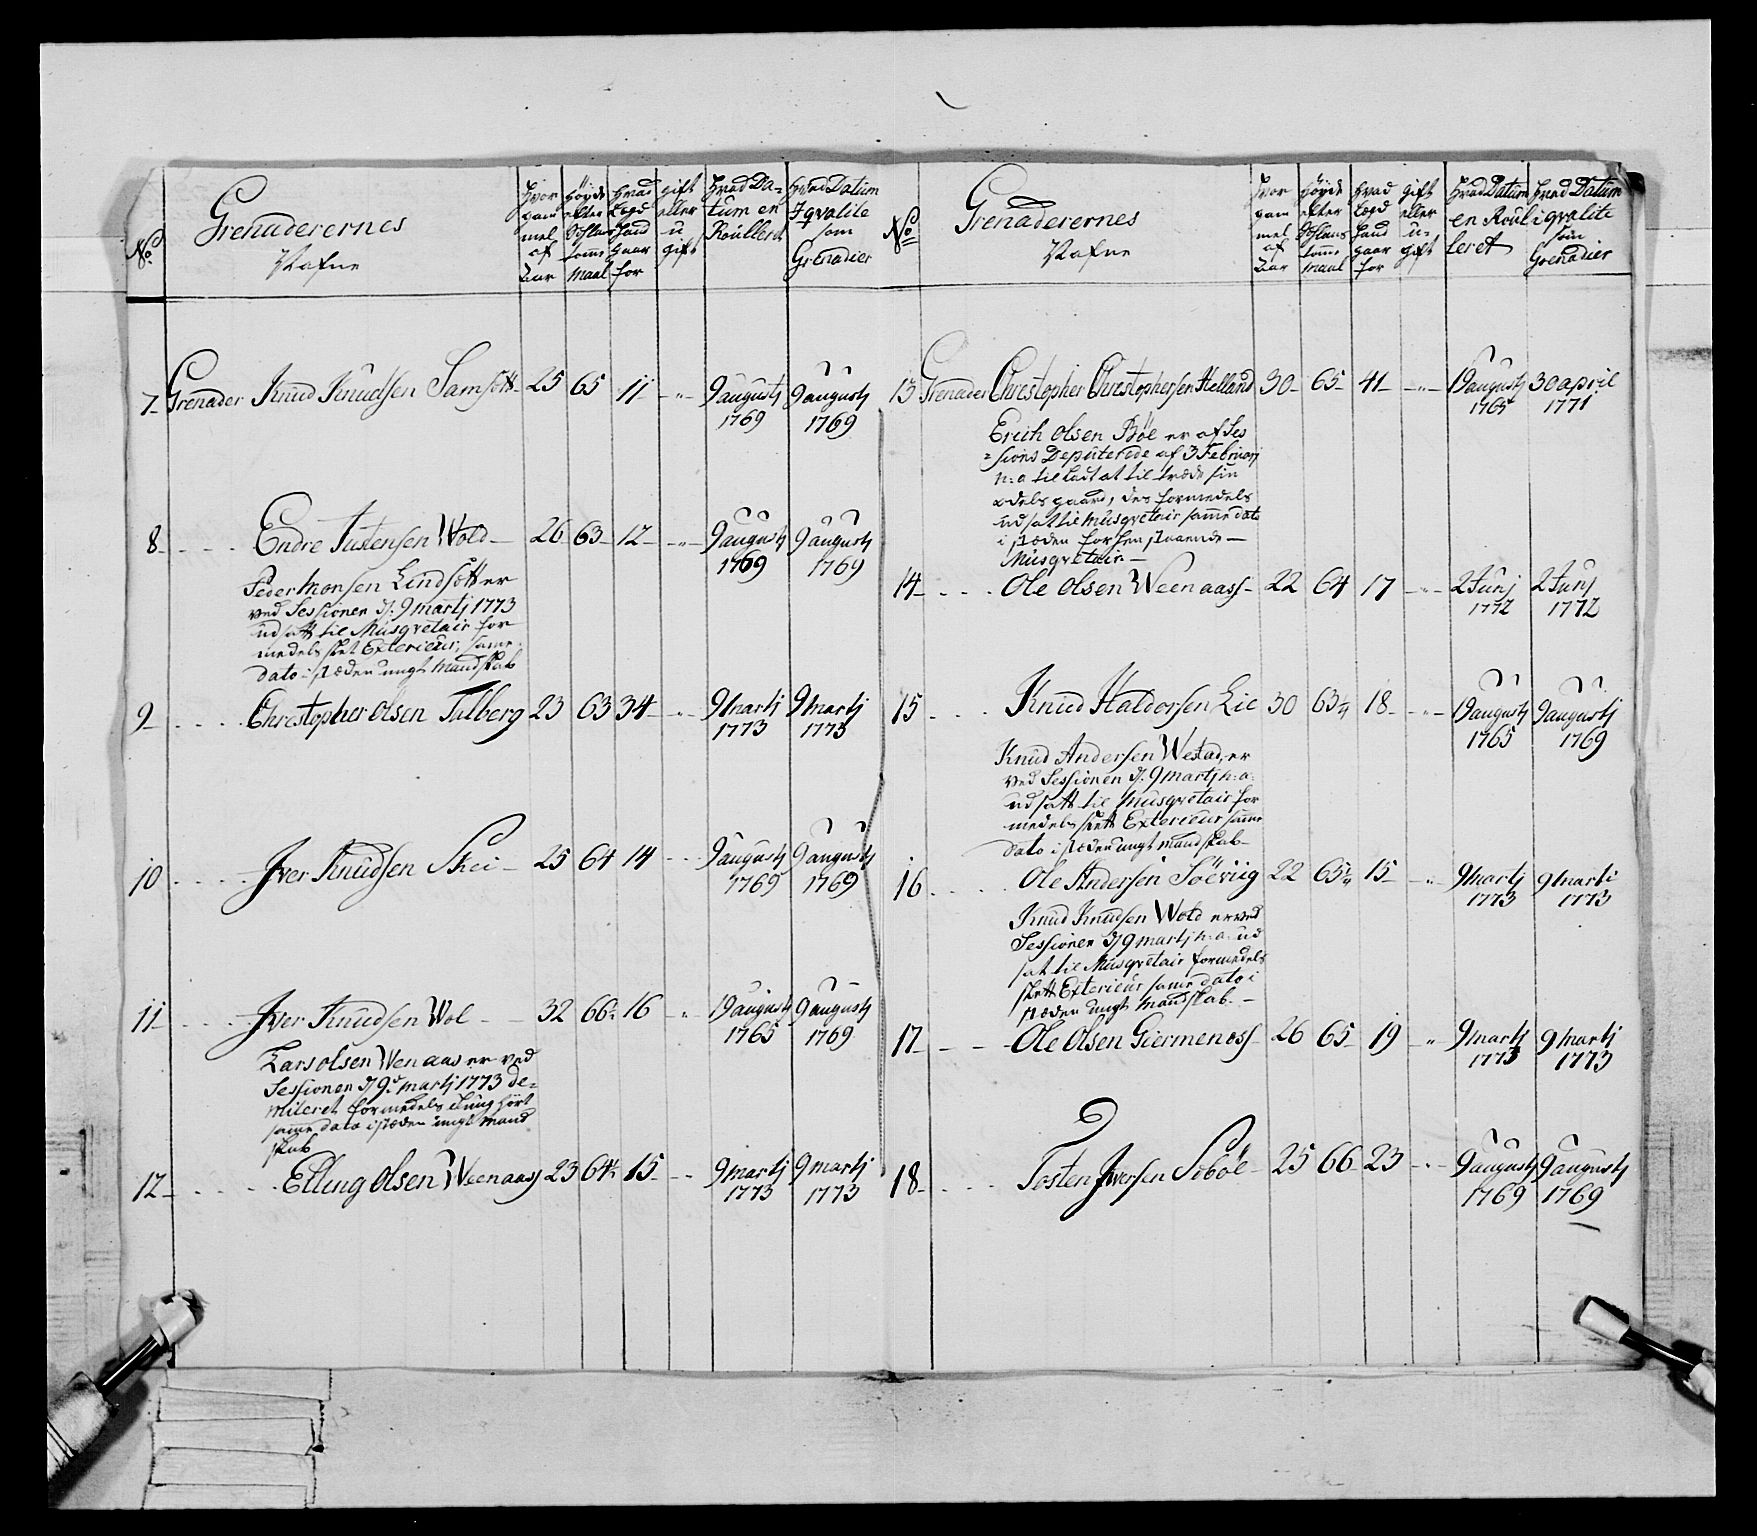 No.
Grenaderernes
Nafne
hvor gammel af Aar
høyde efter Tollens tomme maal
hvad Legd hand gaar for
gift eller u gift
hvad Datum en Roulleret
hvad Datum I qvalite som Grenadier
7 Grenader Knud Knudsen 25 65 11 - " - 9 augustj 9 augustj
1769 1769
8 - - - Endre Justensen Wold - 26 63 - 12 - - " - 9 augustj 9 augustj
1769 1769
Peder Monsen Lindsøtt er
ved Sessionen d. 9 martj 1773
udsatt til Musqvetair for
medelst slet Exterieur, samme
dato i stæden ungt mandskab
9 - - - - Christopher olsen Tilberg 23 63 34 - - " - 9 martj 9 martj
1773 1773
10 - - - - Iver Knudsen Skei - 25 64 14 - - - 9 augustj 9 augustj
1769 1769
11 - - - - Iver Knudsen Wol - - 32 66 16 - " 19 augustj 9 augustj
1765 1769
Lars olsen Wenaas er ved
Sessionen d 9 martj 1773 de=
miteret formedelst
samme dato i stæden ungt mand
skab
12 - - - - Elling olsen Weenaas 23 64 15 - - - 9 martj 9 martj
1773 1773
No
Grenaderernes
Nafne
hvor gam mel af Aar
høyde efter tomme maal
hvad Legd hand gaar for
gift eller u= gift
hvad Datum en Roul leret
hvad Datum i qvalite som Grenadier
13 Grenader Christopher Christophersen Helland 30 - 65 - 41 - - " - 19 augustj 30 april
1765 1771
Erich olsen Bøe er af Ses
=sions Deputerede af 3 Februarj
h: a til ladt at til træde sin
odels gaard, des formedelst
udsat til Musqvetair samme dato
i stæden for hen staaende -
Musqvetair -
14 - - - - Ole olsen Weenaass - 22 64 17 - " - 2 Junj 2 Junj
1772 1772
15 - - - Knud Haldorsen Lie 30 63 ¼ 18 - - " - 19 augustj 9 augustj
1765 1769
Knud Andersen Westad, er
ved Sessionen d. 9 martj h: a:
udsatt til Musqvetair for
medelst slett Exterieur samme
dato i stæden ungt mandskab -
16 - - - - Ole Andersen Søeviig 22 65 ¼ 15 - - " - 9 martj 9 martj
1773 1773
Knud Knudsen Wold er ved
Sessionen d 9 martj h: a: ud
sat til Musqvetair formedelst
slett Exterieur samme dato i
stæden ungt mandskab. -
17 - - - Ole Olsen Giermenæss - 26 65 - 19 - " 9 martj 9 martj
1773 1773
18 - - - - Tosten Iversen Sobøe - 25 66 23 - " - 9 augustj 9 augustj
1769 1769